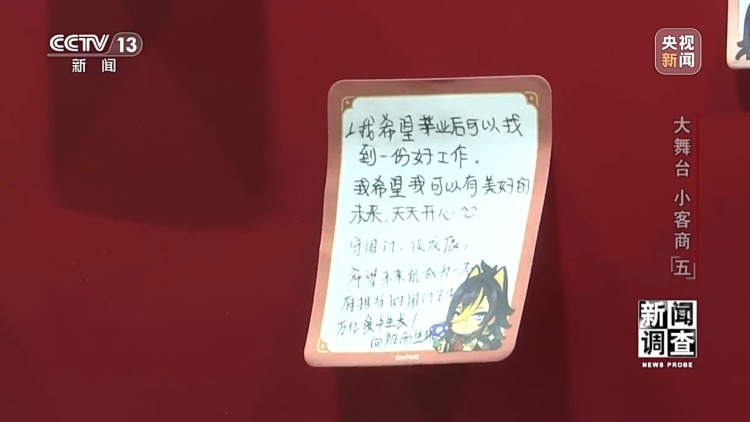 CCTV 13
新闻
央视
新闻
1.我希望毕业后可以找
到一份好工作。
我希望我可以有美好的
未来,天天开心
守国门、促发展,
希望未来能成为一名
有担当的国门卫士
万亿
向阳而生
大舞台 小客商「五」
新闻
调查
NEWS PROBE